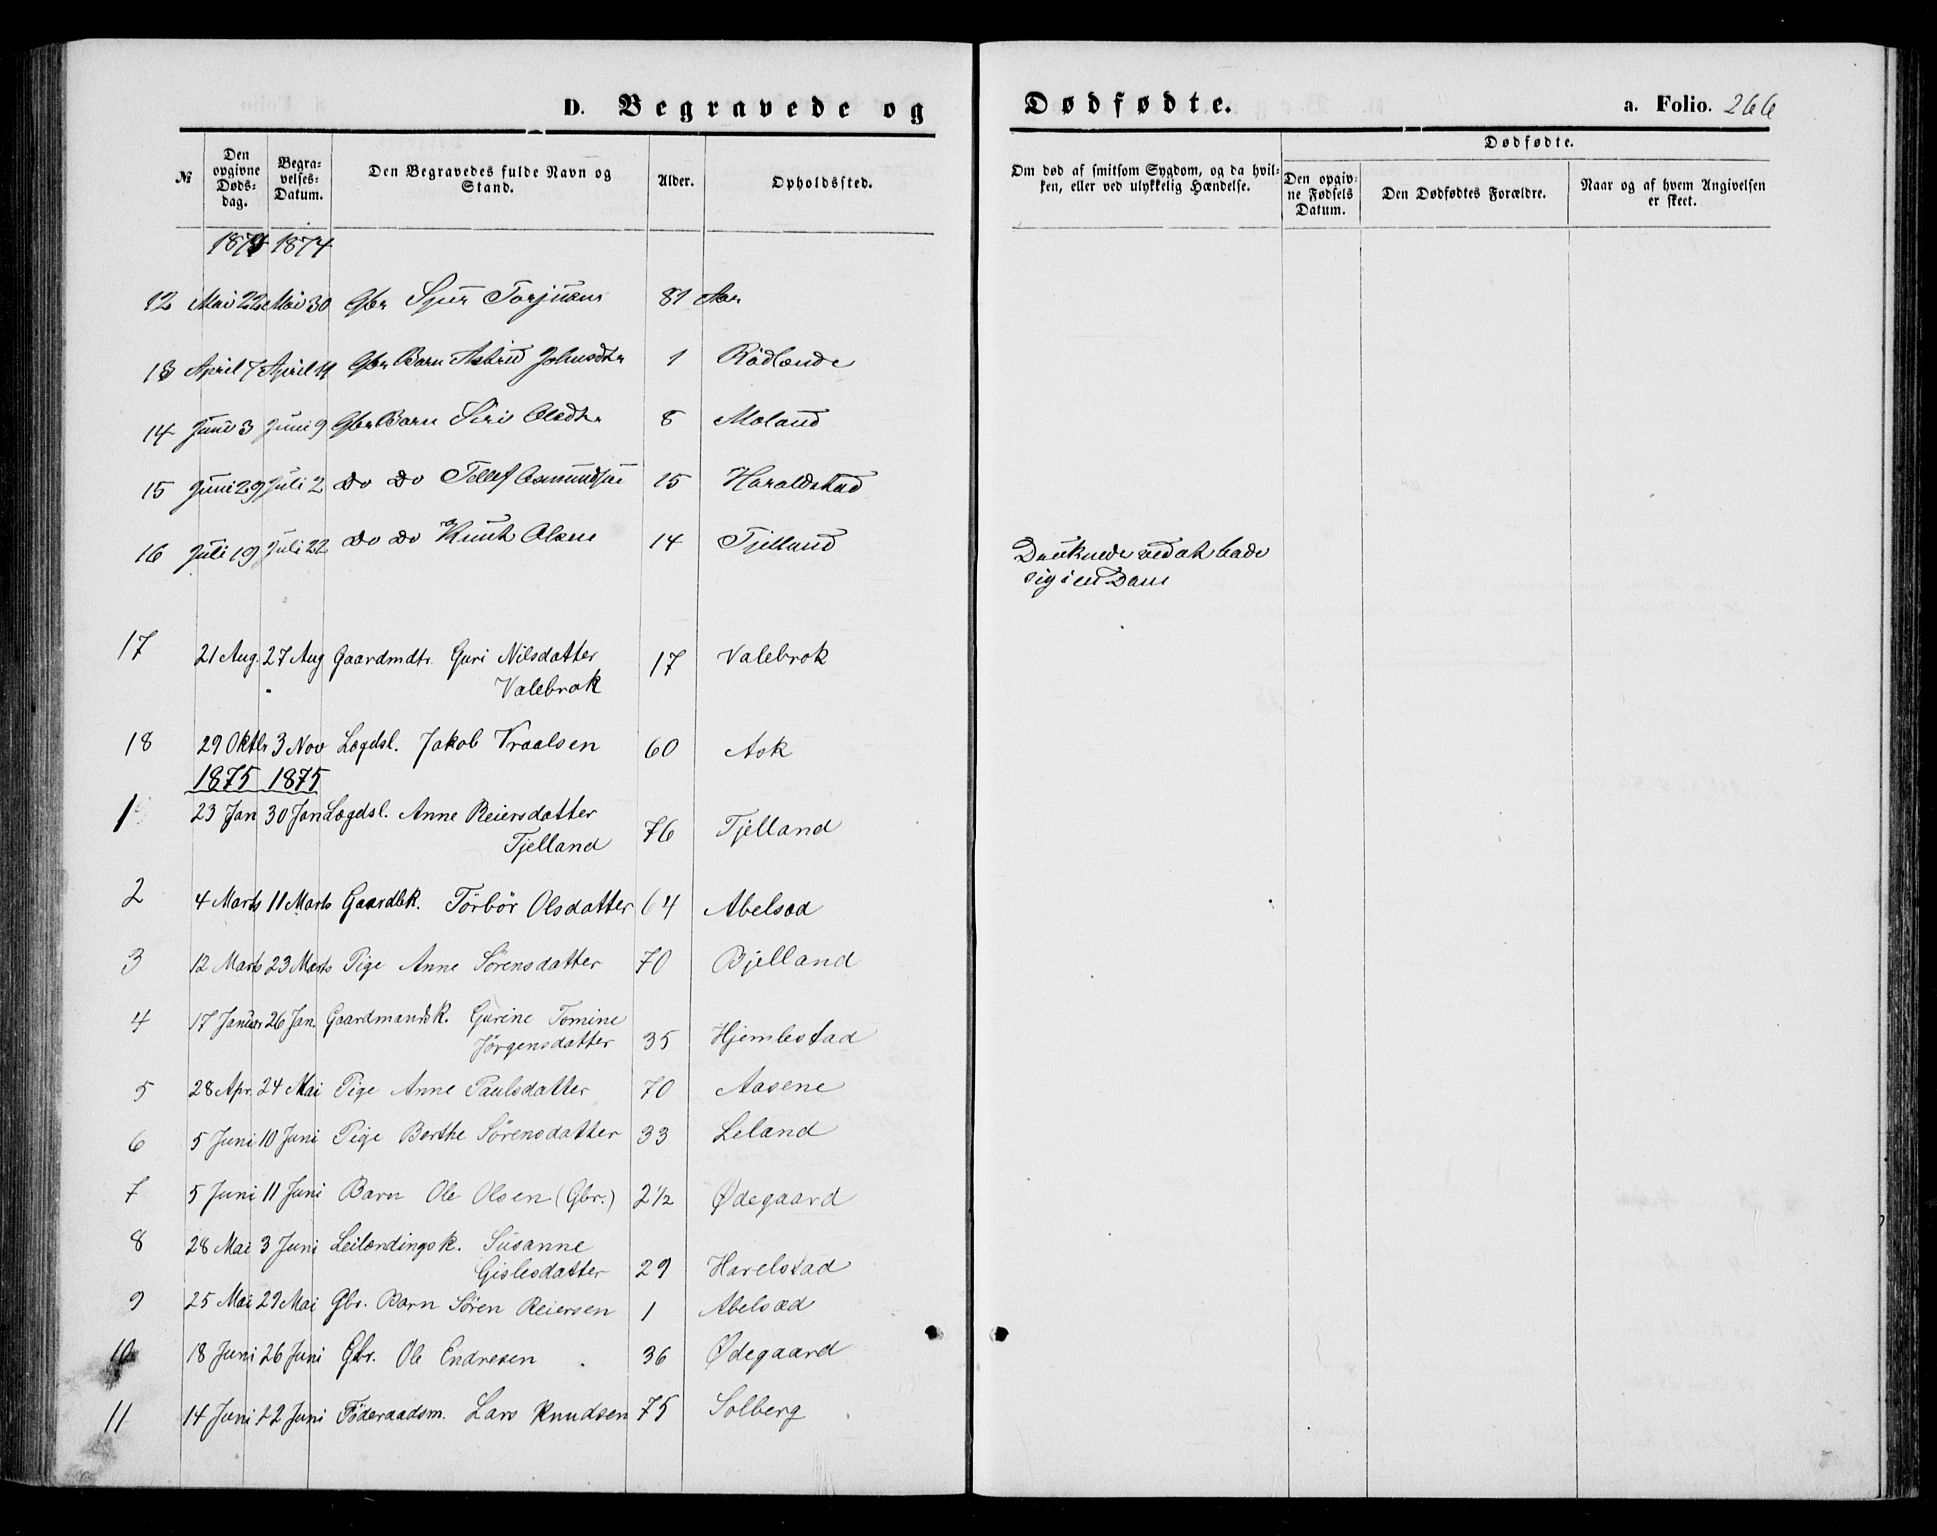 D. Begravede og Dødfødte. a. Folio. 266
№
Den opgivne Døds-dag.
Begra-velses-Datum.
Den Begravedes fulde Navn og Stand.
Alder.
Opholdssted.
Om død af smitsom Sygdom, og da hvil-ken, eller ved ulykkelig Hændelse.
Dødfødte.
Den opgiv-ne Fødsels Datum.
Den Dødfødtes Forældre.
Naar og af hvem Angivelsen er skeet.
1874 1874
12 Mai 22 Mai 30 Gbr Torjusen 81 Aar
13 April 7 April 11 Gbr Barn Astrid Johnsdtr 1 Rödlende
14 Juni 3 Juni 9 Gbr Barn Siri Olsdtr 8 Moland
15 Juni 29 Juli 2 Do Do Tellef Osmundsen 15 Haraldstad
16 Juli 19 Juli 22 Do Do Knut Olsen 14 Tjelland Druknede ved at bade
sig i en Dam
17 21 Aug. 27 Aug Gaardmdtr. Guri Nilsdatter 17 Valebrok
Valebrok
18 29 Oktbr 3 Nov Lægdsl. Jakob Vraalsen 60 Ask
1875 1875
1 23 Jan 30 Jan Lægdsl. Anne Reiersdatter
Tjelland 76 Tjelland
2 4 Marts 11 Marts Gaardbk. Törbör Olsdatter 64 Abelsæd
3 12 Marts 23 Marts Pige Anne Sørensdatter 70 Bjelland
4 17 Januar 26 Jan. Gaardmandsk. Gurine Tomine
Jørgensdatter 35 Hjemlestad
5 28 Apr. 24 Mai Pige Anne Paulsdatter 70 Aasene
6 5 Juni 10 Juni Pige Berthe Sørensdatter 33 Leland
7 5 Juni 11 Juni Barn Ole Olsen (Gbr.) 2 1/2 Ødegaard
8 28 Mai 3 Juni Leilændingsk. Susanne
Gislesdatter 29 Harelstad
9 25 Mai 29 Mai Gbr. Barn Søren Reiersen 1 Abelsæd
10 18 Juni 26 Juni Gbr. Ole Endresen 36 Ødegaard
11 14 Juni 22 Juni Föderaadsm. Lars Knudsen 75 Solberg